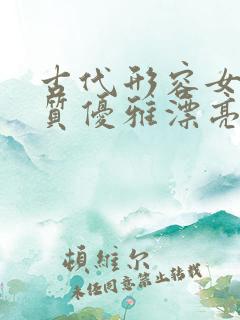 古代形容女
质优雅漂亮
顿维尔
未经同意禁止转载